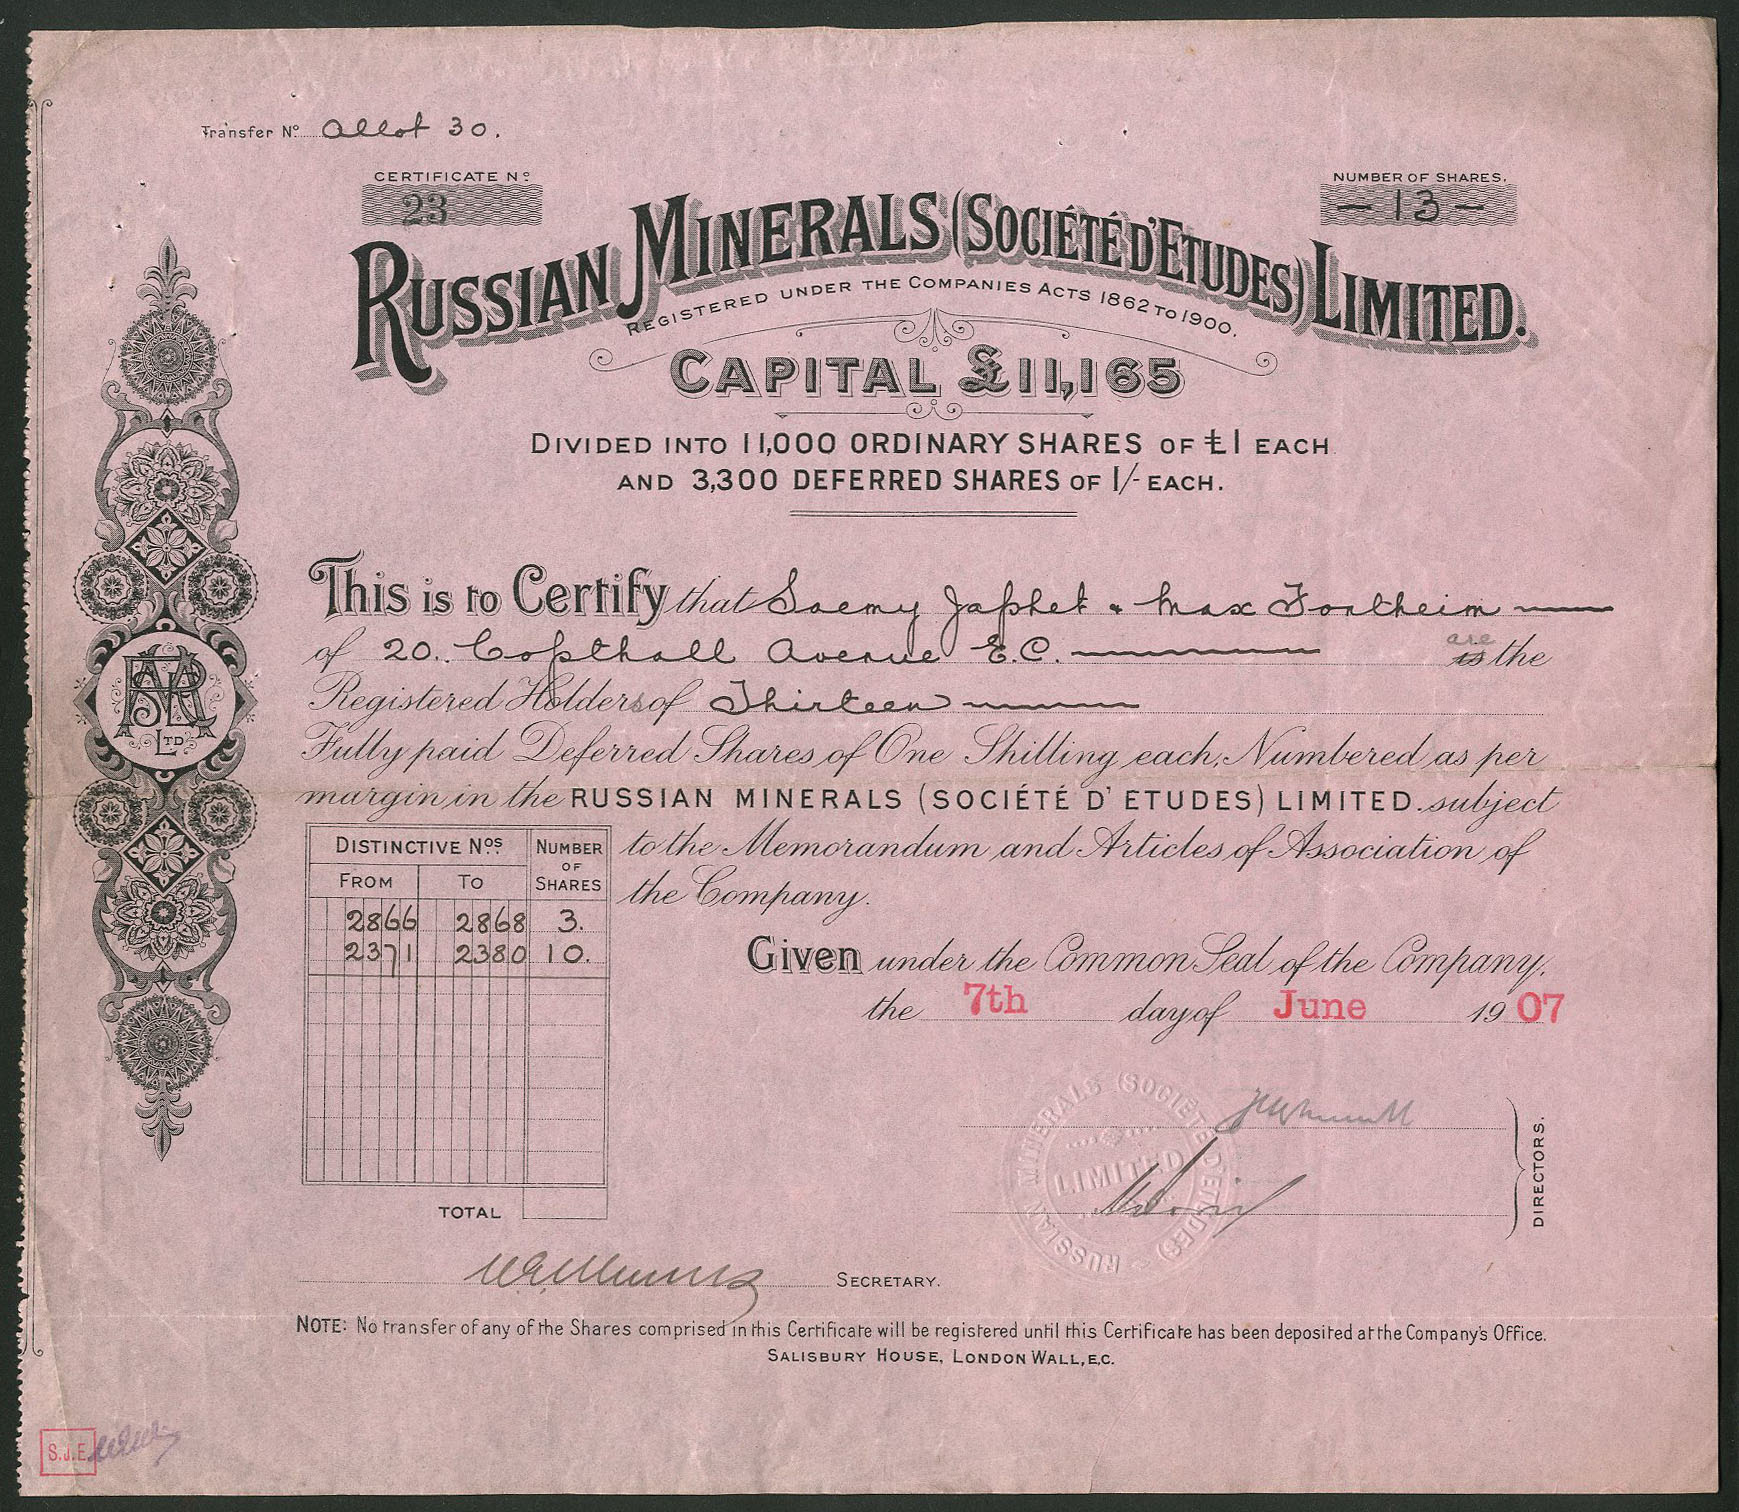 Transfer No. Allot 30.
CERTIFICATE No.
23
NUMBER OF SHARES.
— 13 —
RUSSIAN MINERALS (SOCIÉTÉ D'ETUDES) LIMITED.
REGISTERED UNDER THE COMPANIES ACTS 1862 TO 1900.
CAPITAL £11,165
DIVIDED INTO 11,000 ORDINARY SHARES OF £1 EACH
AND 3,300 DEFERRED SHARES OF 1/- EACH.
This is to Certify that Saemy Japhet & Max Fortheim
of 20. Copthall Avenue E.C. is are the
Registered Holders of Thirteen
Fully paid Deferred Shares of One Shilling each, Numbered as per
margin in the RUSSIAN MINERALS (SOCIÉTÉ D' ETUDES) LIMITED. subject
to the Memorandum and Articles of Association of
the Company.
DISTINCTIVE Nos. NUMBER OF SHARES
FROM TO
2866 2868 3.
2371 2380 10.
TOTAL
Given under the Common Seal of the Company,
the 7th day of June 1907
RUSSIAN MINERALS (SOCIÉTÉ D'ETUDES)
LIMITED
DIRECTORS.
SECRETARY.
NOTE: No transfer of any of the Shares comprised in this Certificate will be registered until this Certificate has been deposited at the Company's Office.
SALISBURY HOUSE, LONDON WALL, E.C.
LTD
S.J.E.